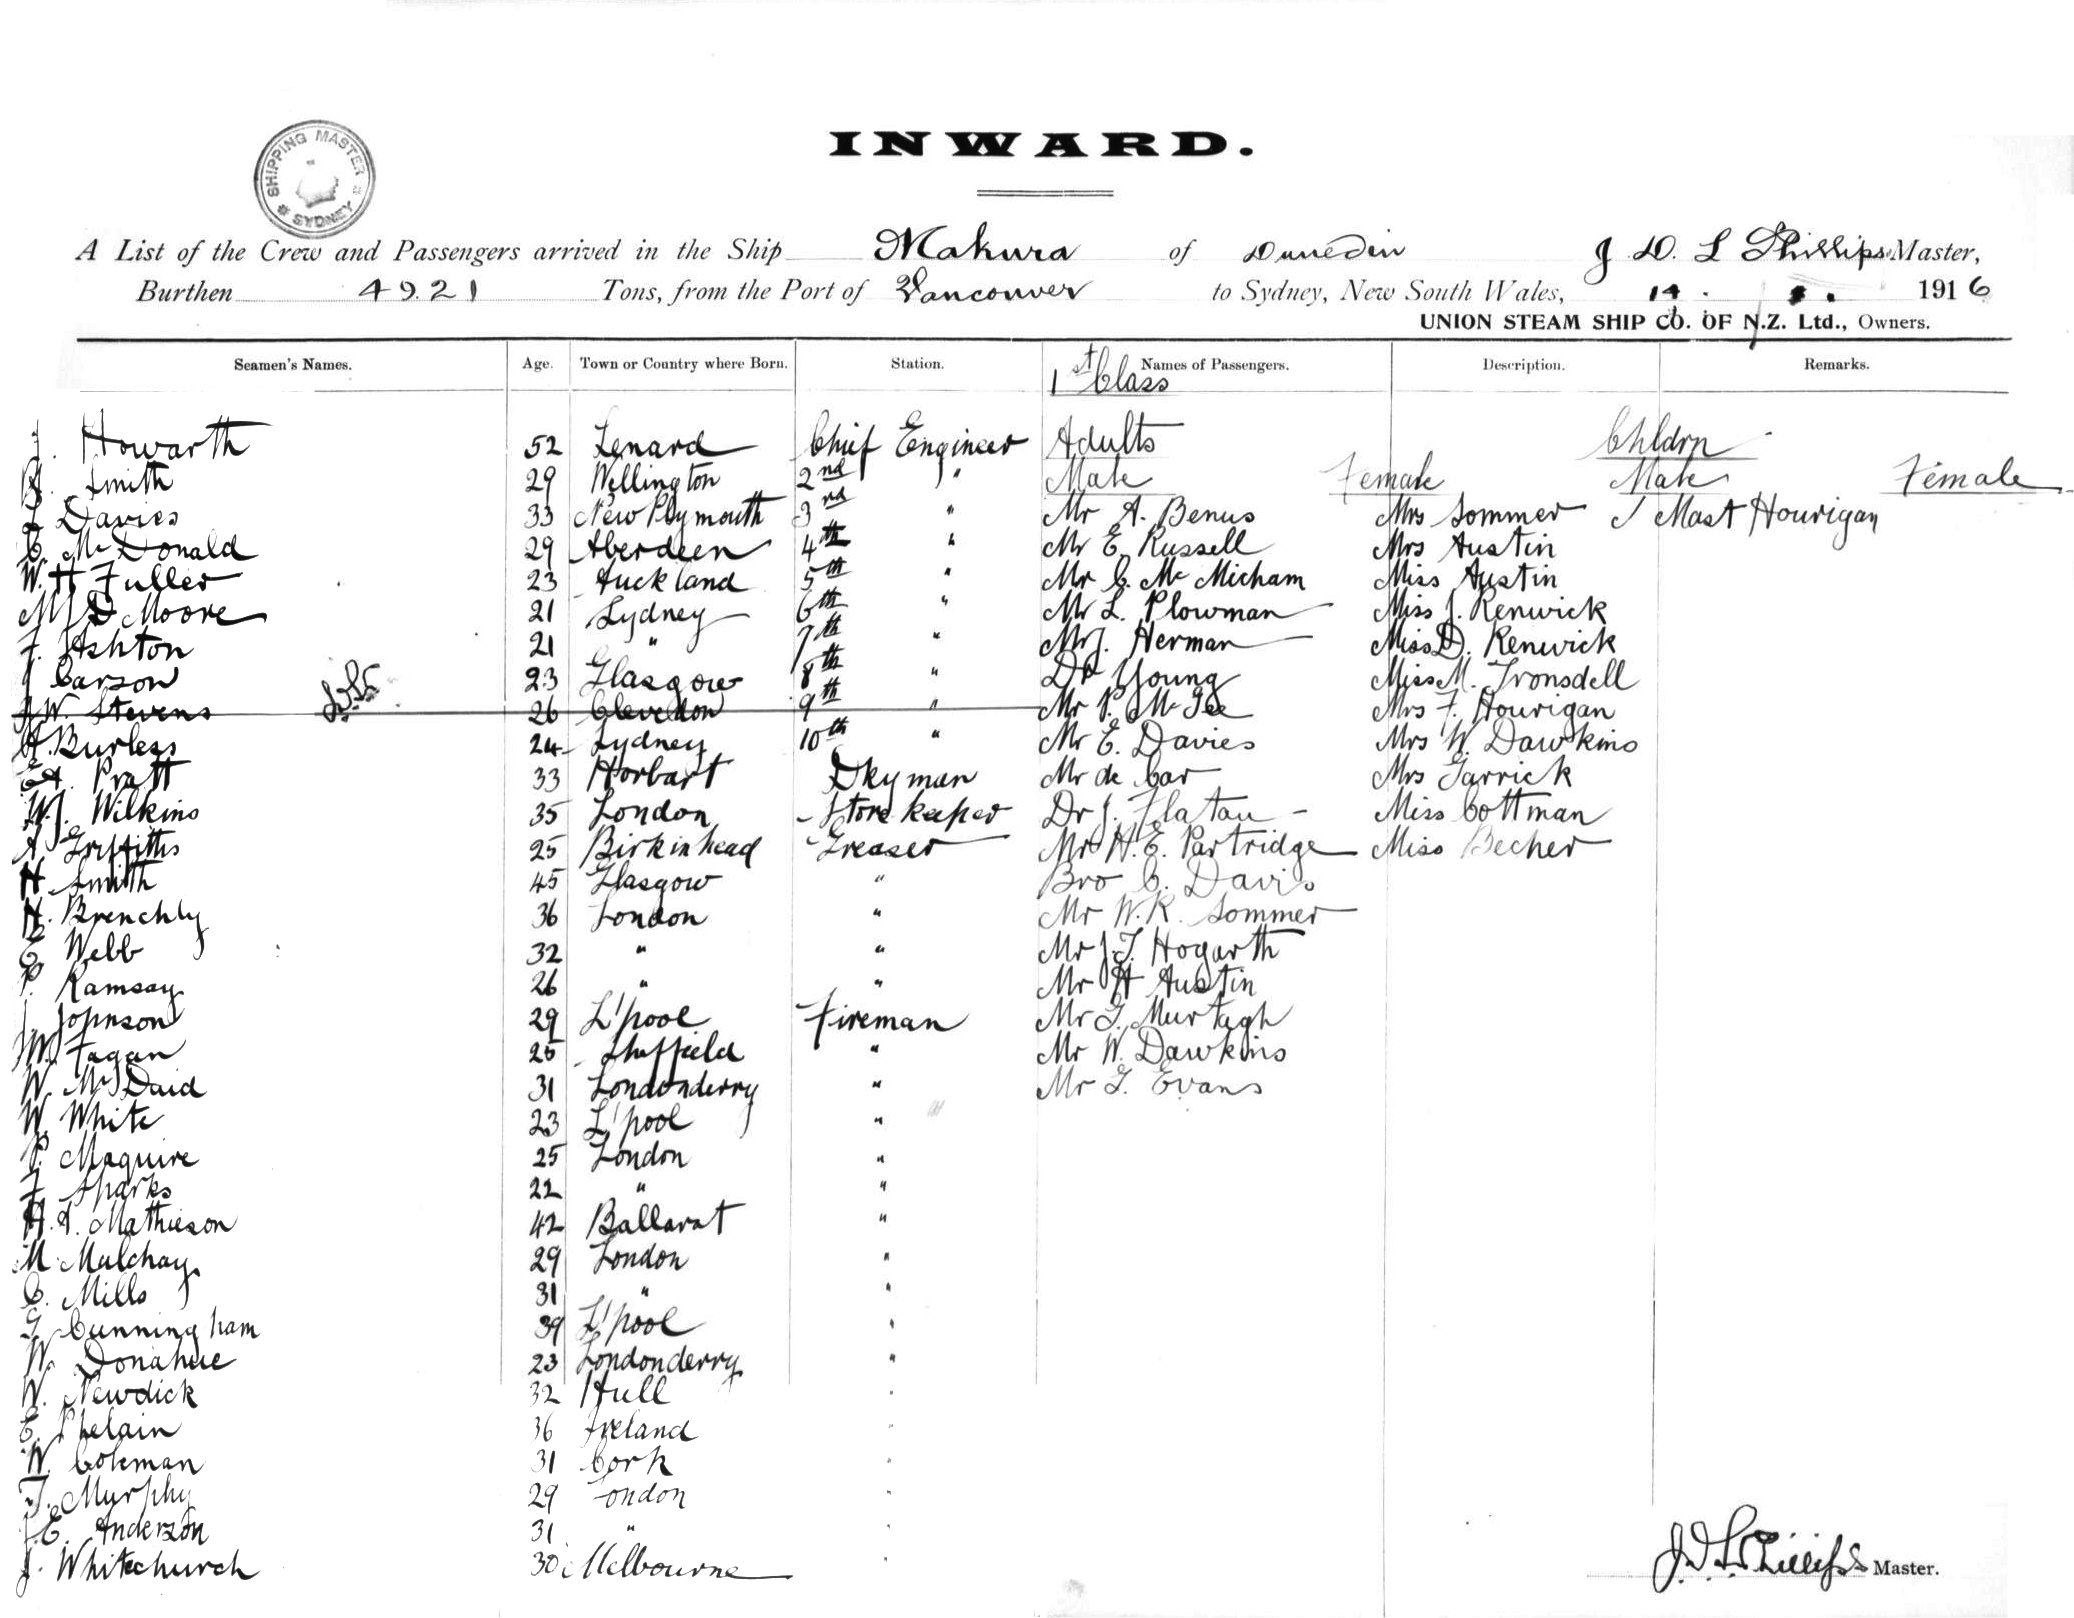 INWARD.
SHIPPING MASTER SYDNEY
A List of the Crew and Passengers arrived in the Ship Makura of Dunedin J D. L Phillips Master,
Burthen 4921 Tons, from the Port of Vancouver to Sydney, New South Wales, 14 . 1916
UNION STEAM SHIP CO. OF N.Z. Ltd., Owners.
Seamen's Names. Age. Town or Country where Born. Station. Names of Passengers. Description. Remarks.
1st Class
J. Howarth 52 Lenard Chief Engineer Adults Chldrn
Smith 29 Wellington 2nd " Male Female Male Female
Davies 33 New Plymouth 3rd " Mr A. Benus Mrs Sommer 1 Mast Hourigan
C. Mc Donald 29 Aberdeen 4th " Mr E. Russell Mrs Austin
W. H Fuller 23 Auckland 5th " Mr C. Mc Micham Miss Austin
M J D Moore 21 Sydney 6th " Mr L. Plowman Miss J. Renwick
F. Ashton 21 " 7th " Mr J. Herman Miss D. Renwick
J Carson 23 Glasgow 8th " Dr Young Miss M. Ironsdell
J W. Stevens 26 Clevedon 9th " Mr P. McGee Mrs F. Hourigan
A. Burless 24 Sydney 10th " Mr E. Davies Mrs W. Dawkins
E A. Pratt 33 Horbart Dkyman Mr de Car Mrs Garrick
W. J. Wilkins 35 London Store keeper Dr J. Flatau - Miss Cottman
A Griffiths 25 Birkinhead Greaser Mr H. E. Partridge Miss Becher
H Smith 45 Glasgow " Bro C. Davis
H. Brenchly 36 London " Mr W. R. Sommer
E Webb 32 " " Mr J. T. Hogarth
P. Ramsay 26 " " Mr H Austin
J. Johnson 29 L'pool Fireman Mr G. Murtagh
W. Fagan 25 Sheffield " Mr W. Dawkins
W. McDaid 31 Londonderry " Mr G. Evans
W. White 23 L'pool "
P. Maguire 25 London "
F Sparks 22 " "
H. A. Mathieson 42 Ballarat "
M. Mulchay 29 London "
C. Mills 31 " "
G Cunningham 39 L'pool "
W. Donahue 23 Londonderry "
W. Newdick 32 Hull "
E. Phelain 36 Ireland "
W. Coleman 31 Cork "
T. Murphy 29 London "
J. E. Anderson 31 " "
J. Whitechurch 30 Melbourne "
J. D. L. Phillips Master.